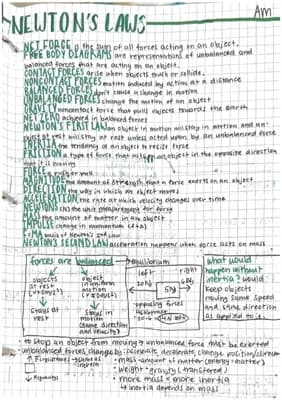 Am
NEWTON'S LAWS
NET FORCE is the sum of all forces acting on an object.
FREE BODY DIAGRAMS are representations of unbalanced and
balanced forces that are acting on an object.
CONTACT FORCES arise when objects touch or collide.
NONCONTACT FORCES motion induced by action at a distance
BALANCED FORCES don't cause a change in motion
UNBALANCED FORCES change the motion of an object
GRAVITY noncontact force that pulls objects towards the earth
NET ZERO achieved in balanced forces
NEWTON'S FIRST LAW an object in motion will stay in motion and an
object at rest will stay at rest unless acted upon by an unbalanced force
INERTIA the tendency of an object to resist force
FRICTION a type of force that acts on an object in the opposite direction
that it is moving
FORCE a push or pull
MAGNITUDE the amount of strength that a force exerts on an object
DIRECTION the way in which an object moves
ACCELERATION the rate at which velocity changes over time
NEWTONS (N) the unit measurement for force
MASS the amount of matter in an object
IMPULSE change in momentum
F=MA
NEWTON'S SECOND LAW acceleration happens when force acts on mass
forces are balanced → equilibrium
objects at rest
object in uniform motion
stays at rest
stays in motion (same direction and velocity)
left right
opposing forces
what would happen without inertia? would keep objects moving same speed and same direction as applied to it
→ to stop an object from moving → unbalanced force must be exerted
• unbalanced forces change by: accelerate, decelerate, change position/direction
• mass - amount of matter
• weight - gravity
• more mass = more inertia
↳ inertia depends on mass